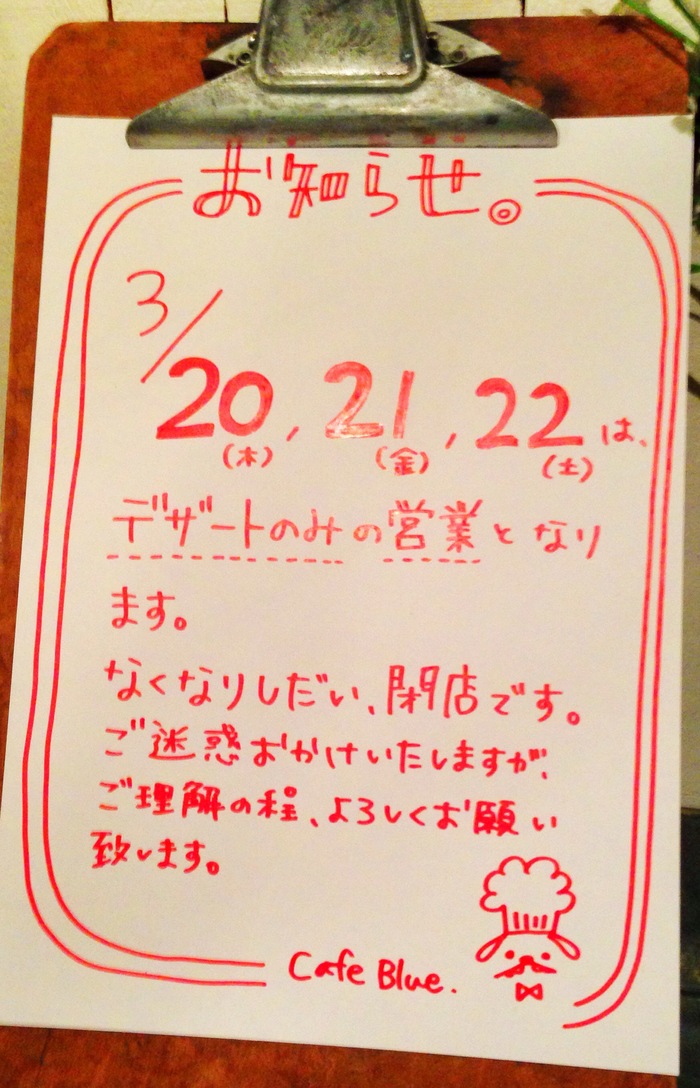 お知らせ。
3/20, 21, 22は、
(木) (金) (土)
デザートのみの営業となり
ます。
なくなりしだい、閉店です。
ご迷惑おかけいたしますが、
ご理解の程、よろしくお願い
致します。
Cafe Blue.